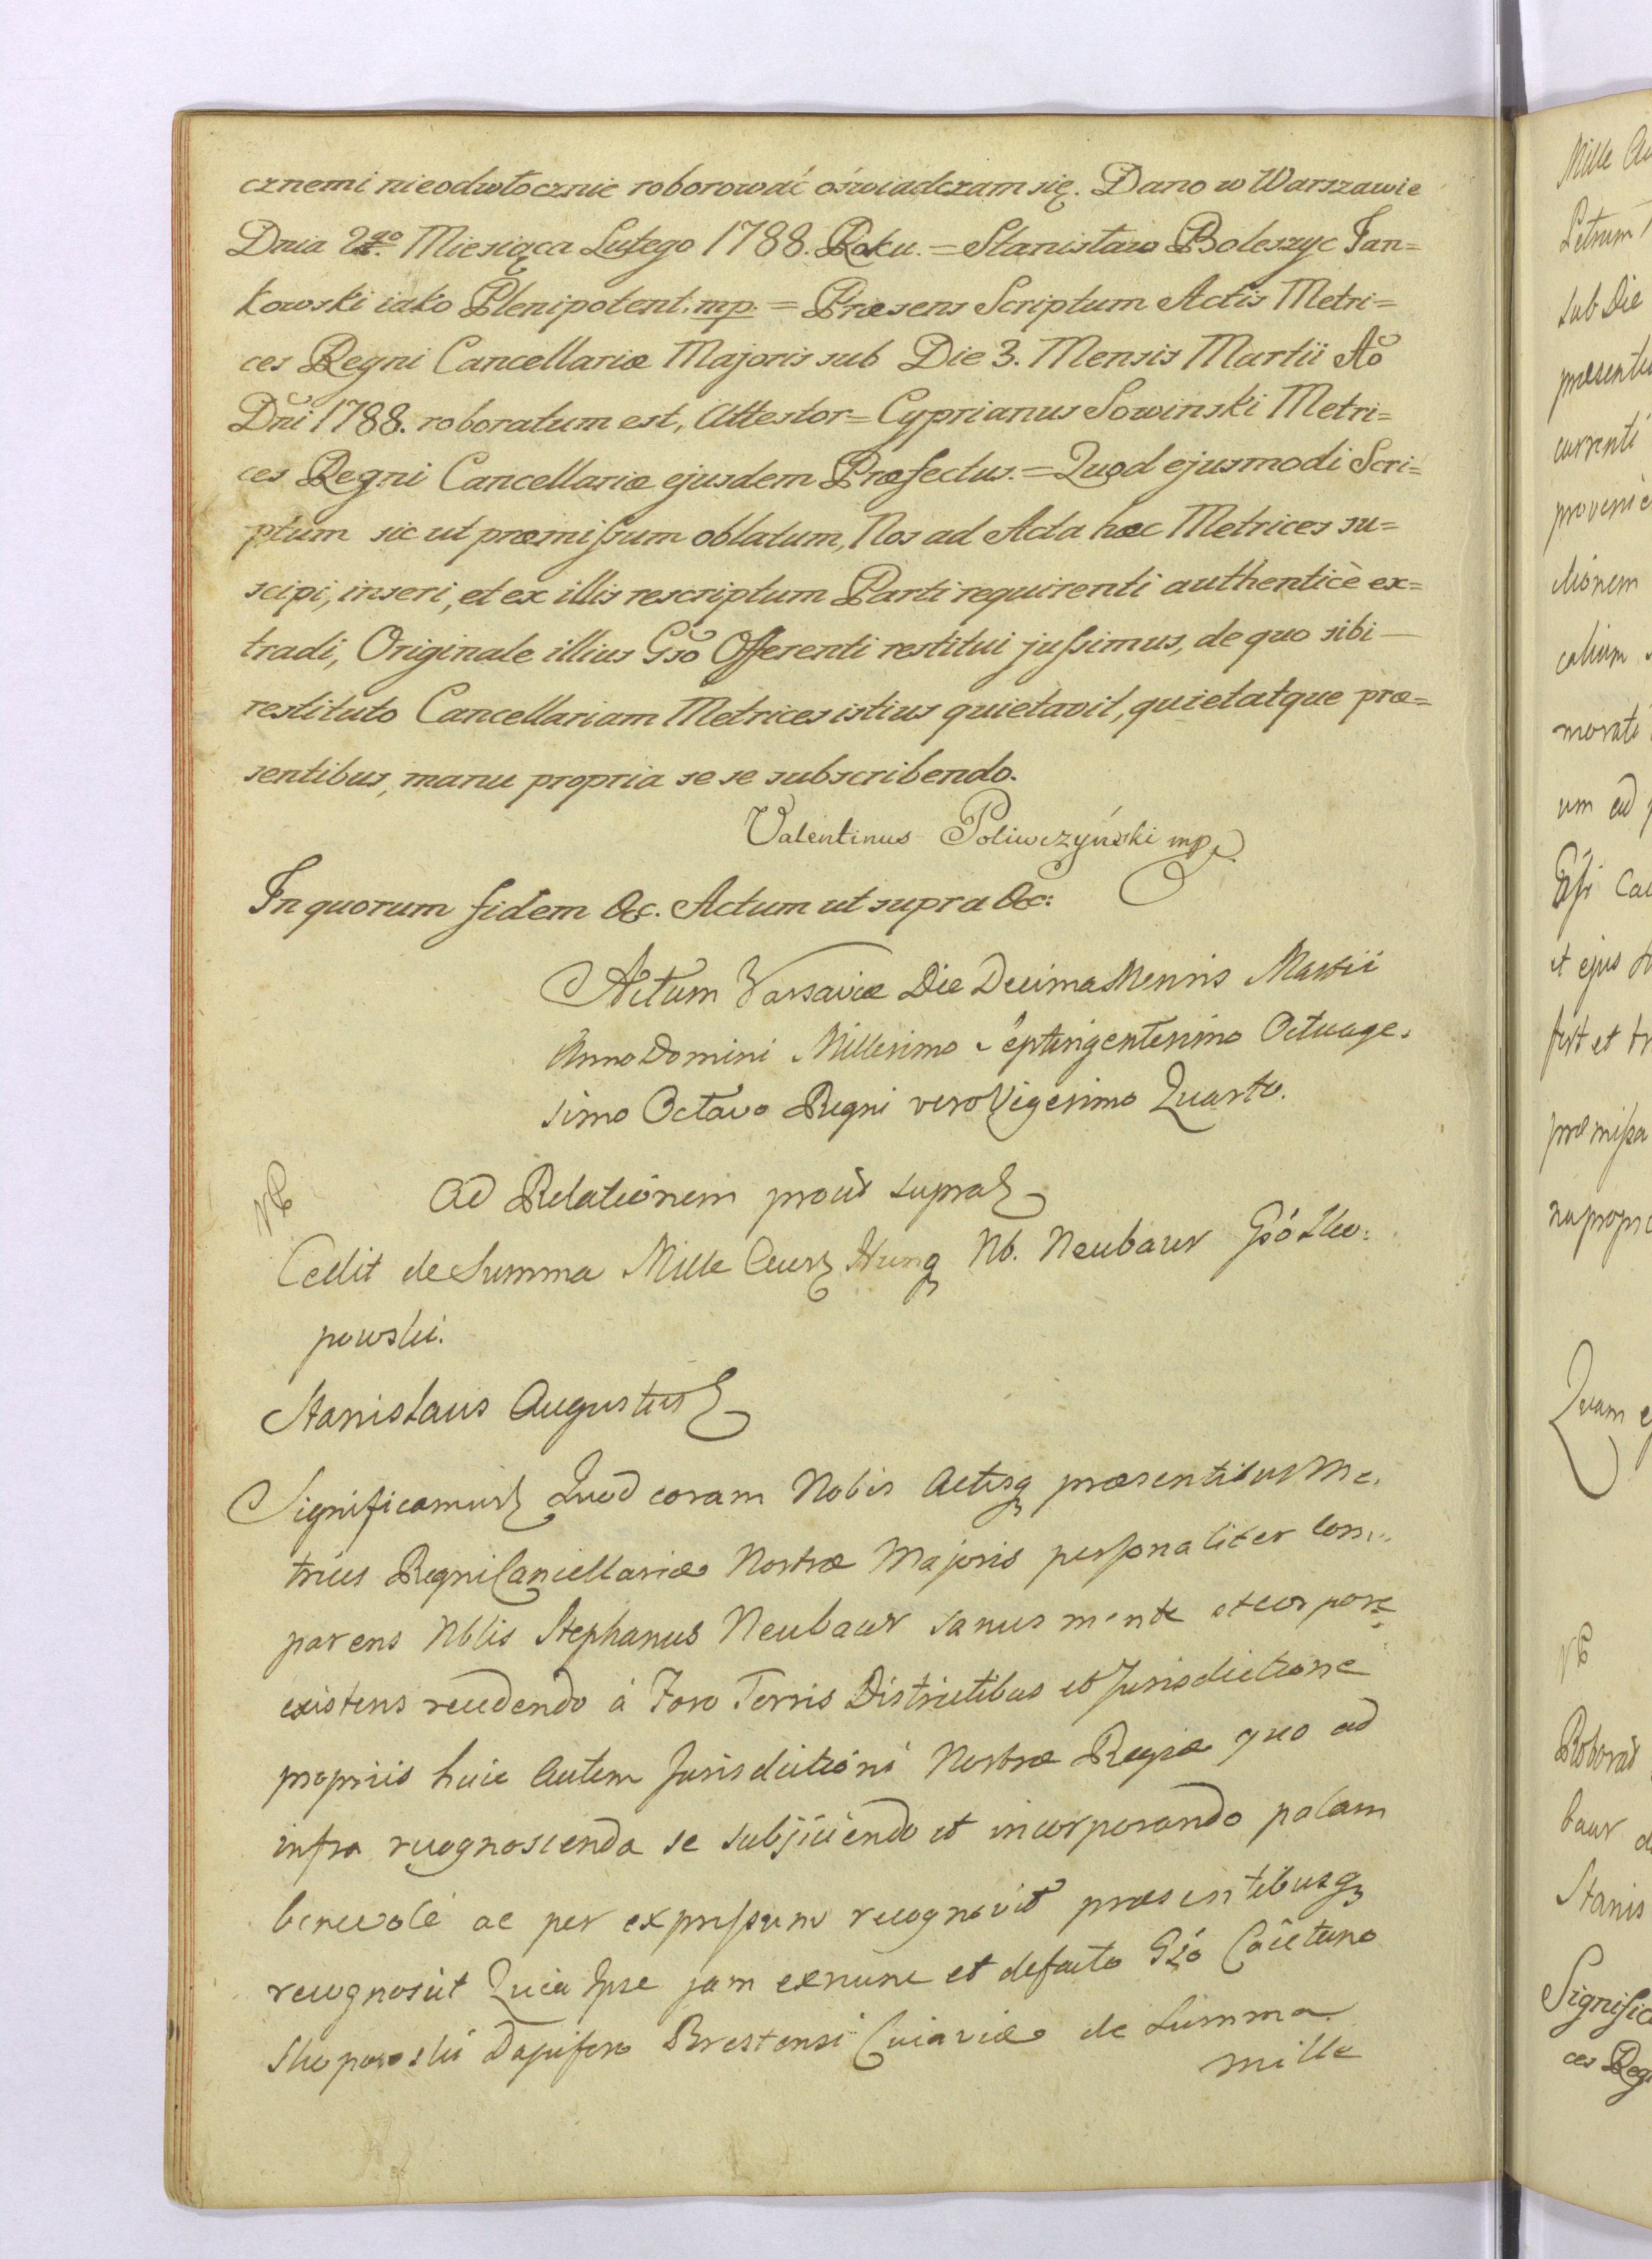 cznemi nieodwłocznie roborować oświadczam się. Dano w Warszawie
Dnia 2go. Miesiąca Lutego 1788. Roku. = Stanisław Boleszyc Jan=
kowski iako Plenipotent. mp. = Præsens Scriptum Actis Metri=
ces Regni Cancellariæ Majoris sub Die 3. Mensis Martii Ao
Dni 1788. roboratum est, Attestor = Cyprianus Sowinski Metri=
ces Regni Cancellariæ ejusdem Præfectus. = Quod ejusmodi Scri=
ptum sic ut præmissum oblatum, Nos ad Acta hæc Metrices su=
scipi, inseri, et ex illis rescriptum Parti requirenti authenticè ex=
tradi, Originale illius Gso Offerenti restitui jussimus, de quo sibi
restituto Cancellariam Metrices istius quietavit, quietatque præ=
sentibus, manu propria se se subscribendo.
Valentinus Poliwczyński mp
In quorum fidem &c. Actum ut supra &c:
Actum Varsaviæ Die Decima Mensis Martii
Anno Domini Millesimo Septingentesimo Octuage.
simo Octavo Regni vero Vigesimo Quarto.
Ad Relationem prout supra
Cedit de Summa Mille Aur Hung Nb. Neubaur Gso Sko.
powski.
Stanislaus Augustus
Significamus Quod coram Nobis Actisq præsentibus Me.
trices Regni Cancellariæ Nostræ Majoris personaliter Com.
parens Nblis Stephanus Neubaur sanus mente et corpore
existens recedendo à Foro Terris Districtibus et Jurisdictione
propriis huic autem Jurisdictioni Nostræ Regiæ quo ad
infra recognoscenda se subjiciendo et incorporando palam
benevolè ac per expressum recognovit præsentibusq
recognoscit Quia Ipse jam exnunc et defacto Gso Caietano
Skopowski Dapifero Brestensi Cuiaviæ de Summa
mille